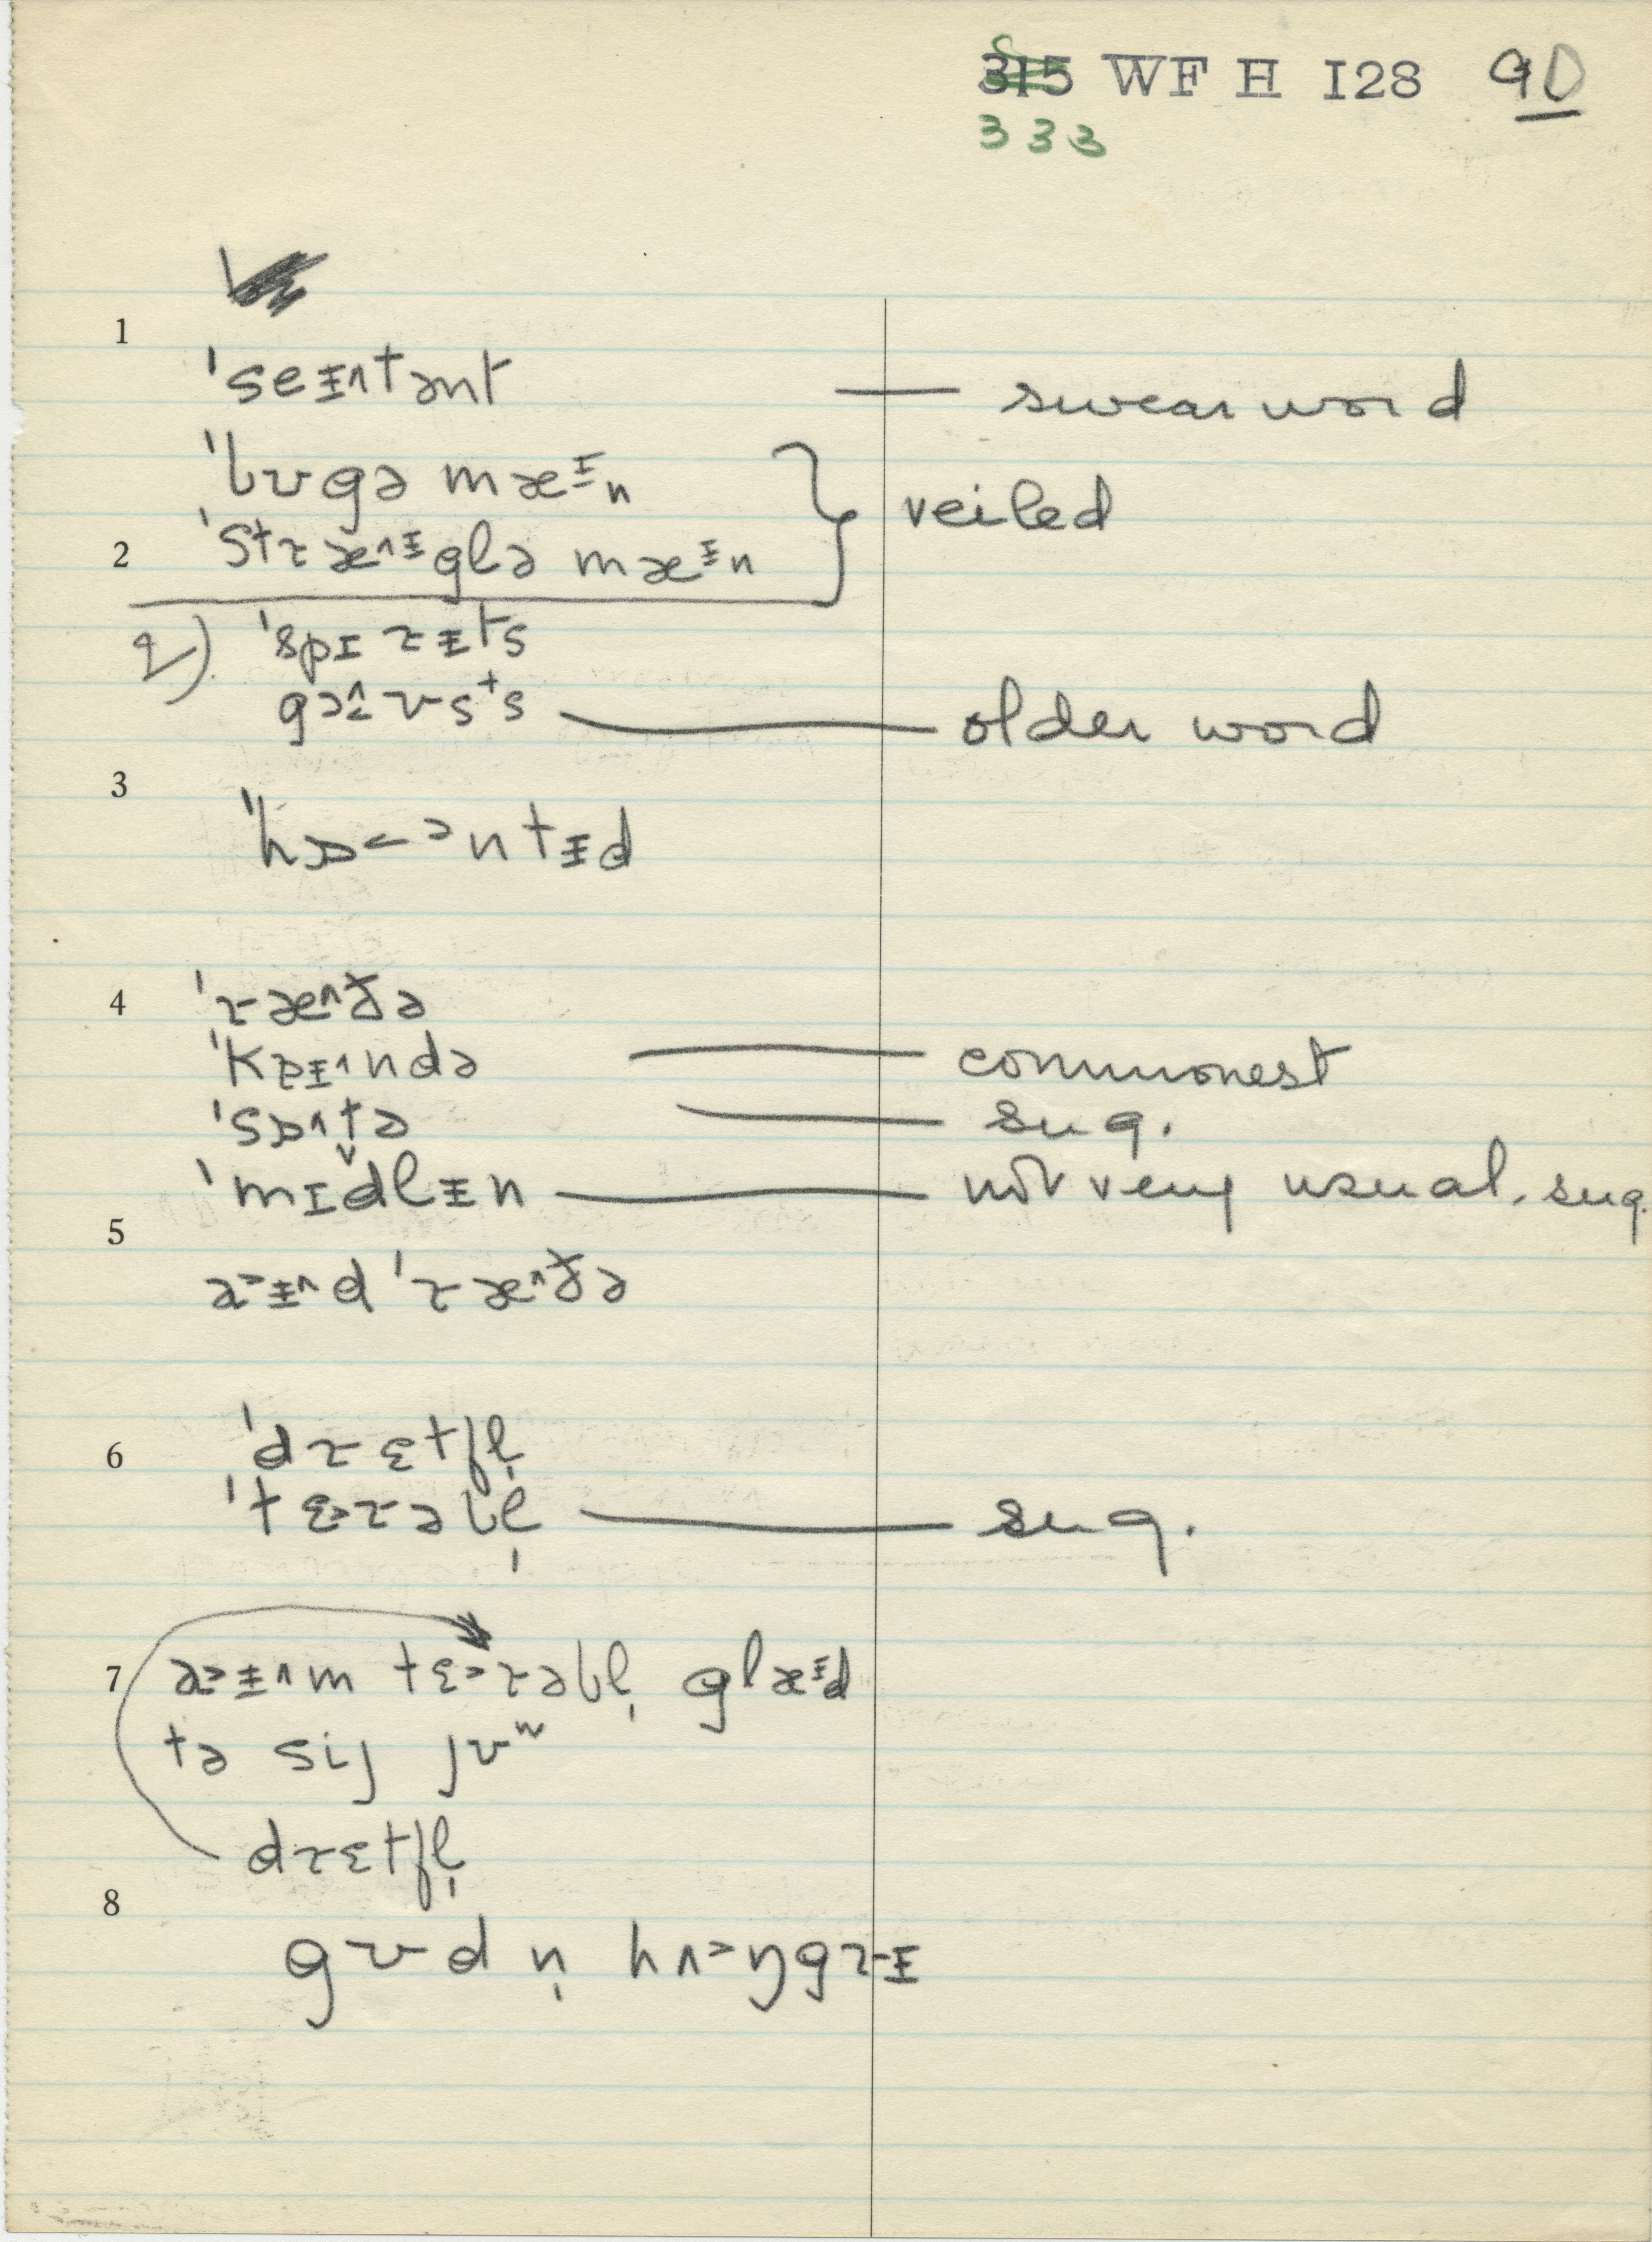 315 WF H I28 90
333
1
ˈseᵻ˄tənt — swear word
ˈbʊgə mæᵻn
veiled
2 ˈstɾæ˄ᵻglə mæᵻn
2) ˈspɪɾᵻts
gə˄ʊsts — older word
3
ˈhɒ<ɔntᵻd
4 ˈɾæ˄ðə
ˈkɐᵻ˄ndə — commonest
ˈsɒ˄t̬ə — sug.
ˈmɪdlᵻn — not very usual. sug.
5
a>ᵻ˄d ˈɾæ˄ðə
6 ˈdɾɛtfl̩
ˈtɛ>ɾəbl̩ — sug.
7 a>ᵻ˄m tɛ>ɾəbl̩ glæᵻd
tə sij jʊʷ
dɾɛtfl̩
8
gʊd n̩ hʌ>ŋgɾᵻ